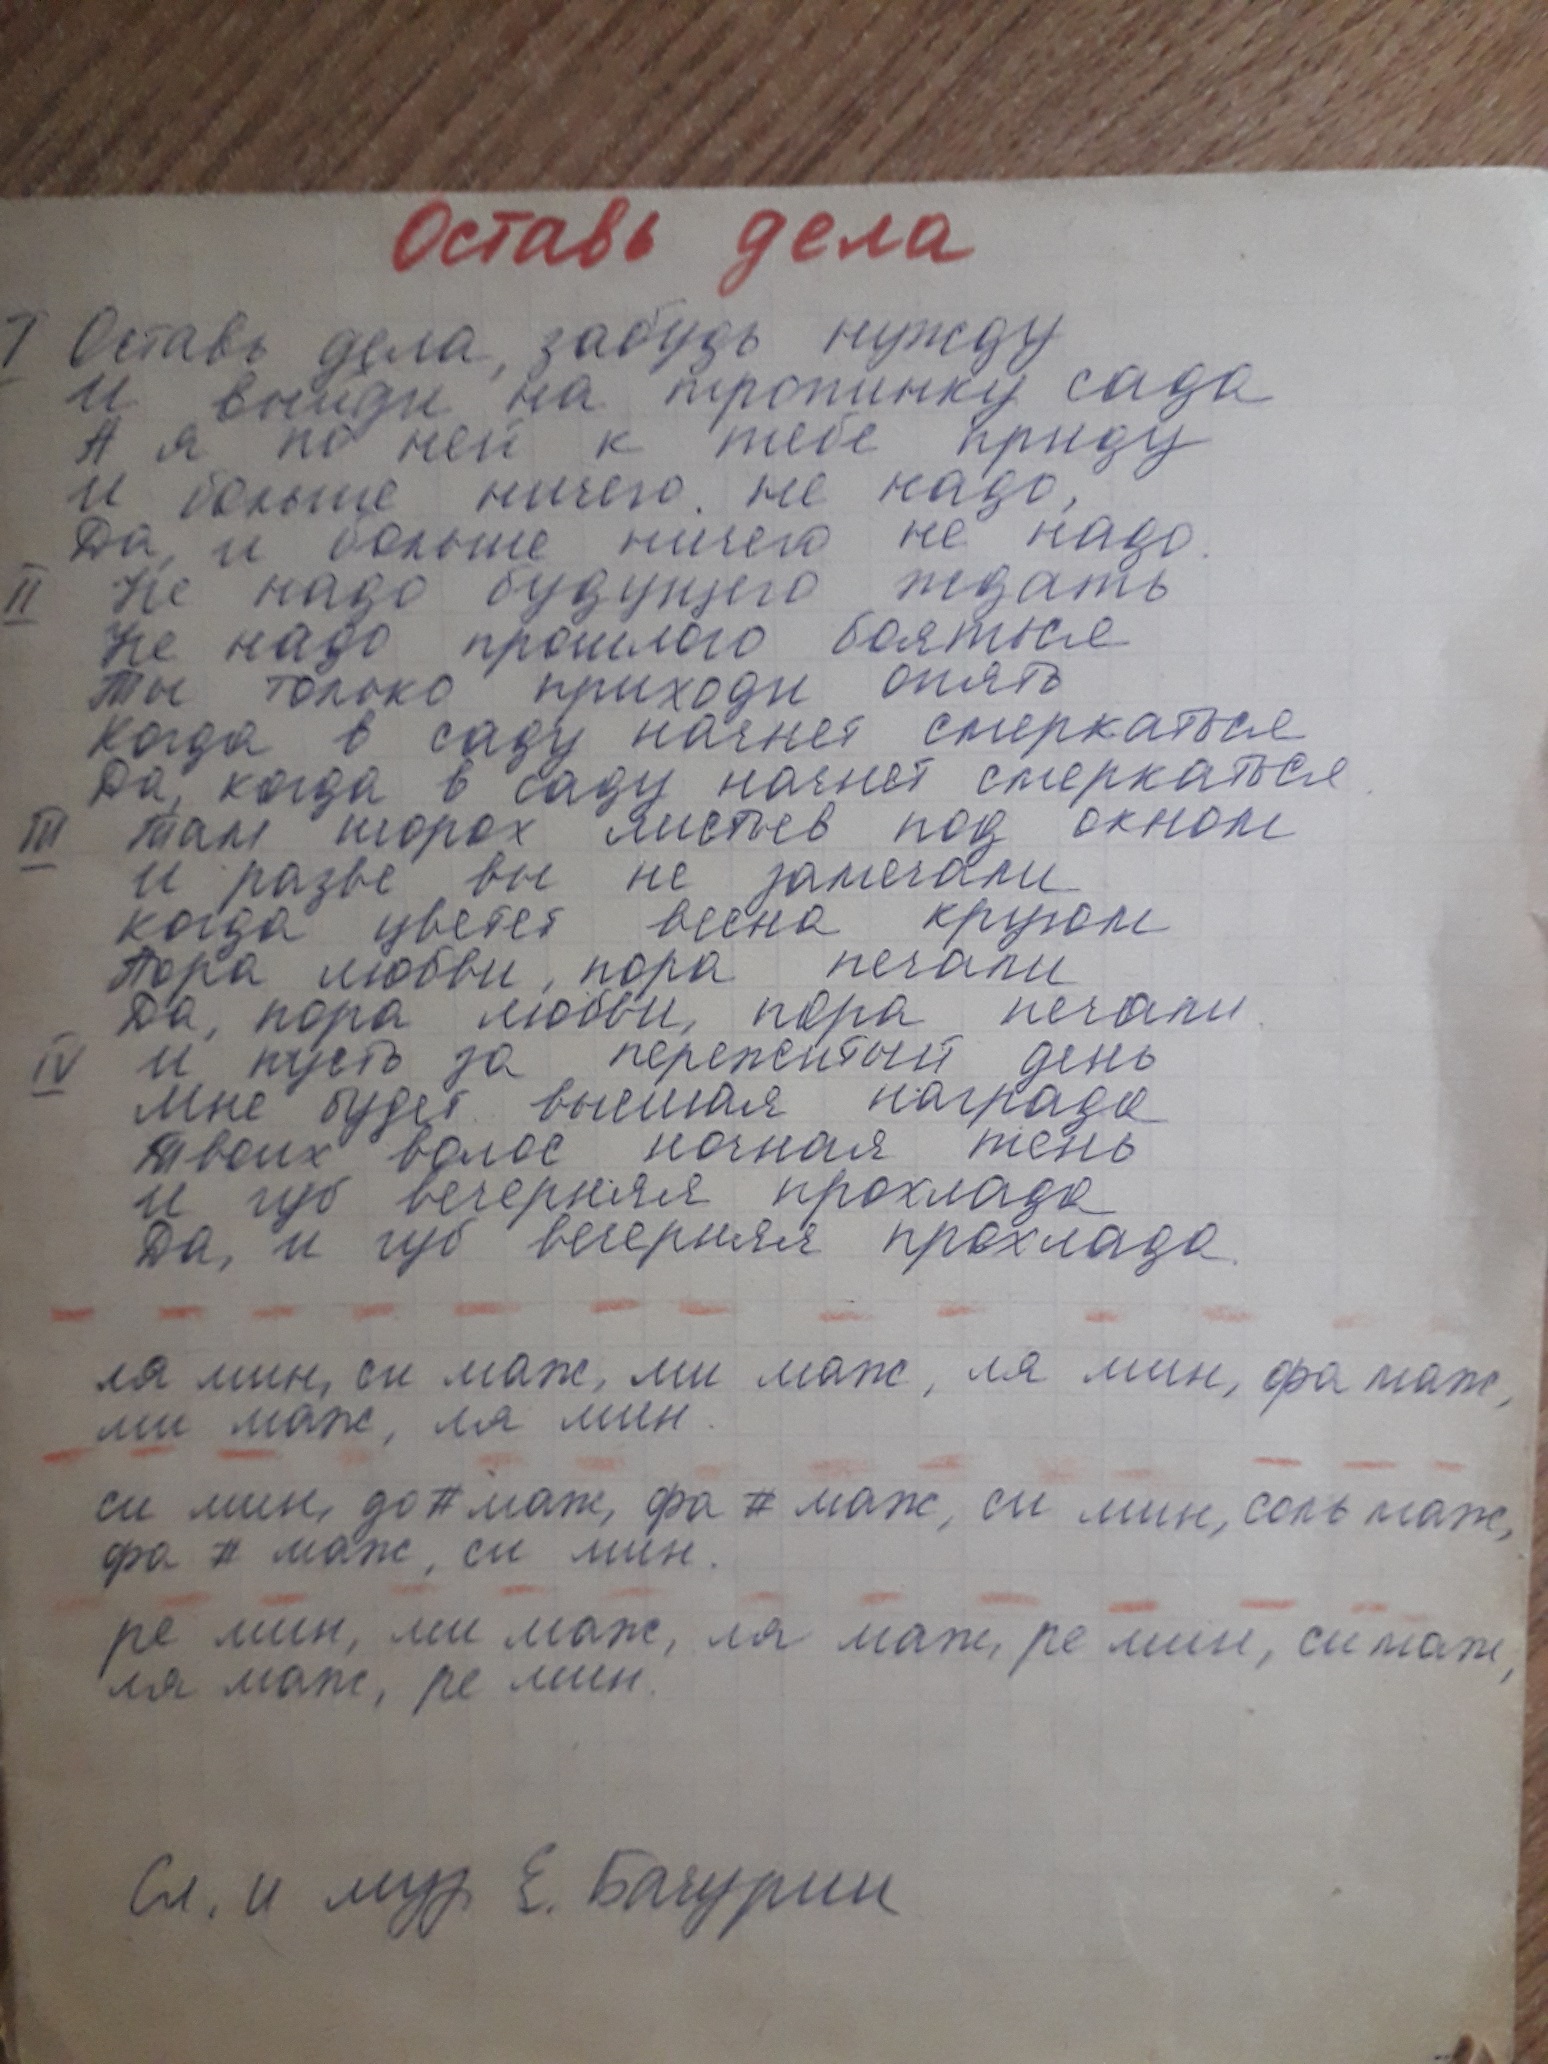 Оставь дела
I Оставь дела, забудь нужду
И выйди на тропинку сада
А я по ней к тебе приду
И больше ничего не надо,
Да, и больше ничего не надо.
II Не надо будущего ждать
Не надо прошлого бояться
Ты только приходи опять
Когда в саду начнет смеркаться
Да, когда в саду начнет смеркаться.
III Там шорох листьев под окном
И разве вы не замечали
Когда цветет весна кругом
Пора любви, пора печали
Да, пора любви, пора печали.
IV И пусть за пережитый день
Мне будет высшая награда
Твоих волос ночная тень
И губ вечерняя прохлада
Да, и губ вечерняя прохлада.
ля мин, си маж, ми маж, ля мин, фа маж,
ми маж, ля мин.
си мин, до # маж, фа # маж, си мин, соль маж,
фа # маж, си мин.
ре мин, ми маж, ля маж, ре мин, си маж,
ля маж, ре мин.
Сл. и муз Е. Бачурин